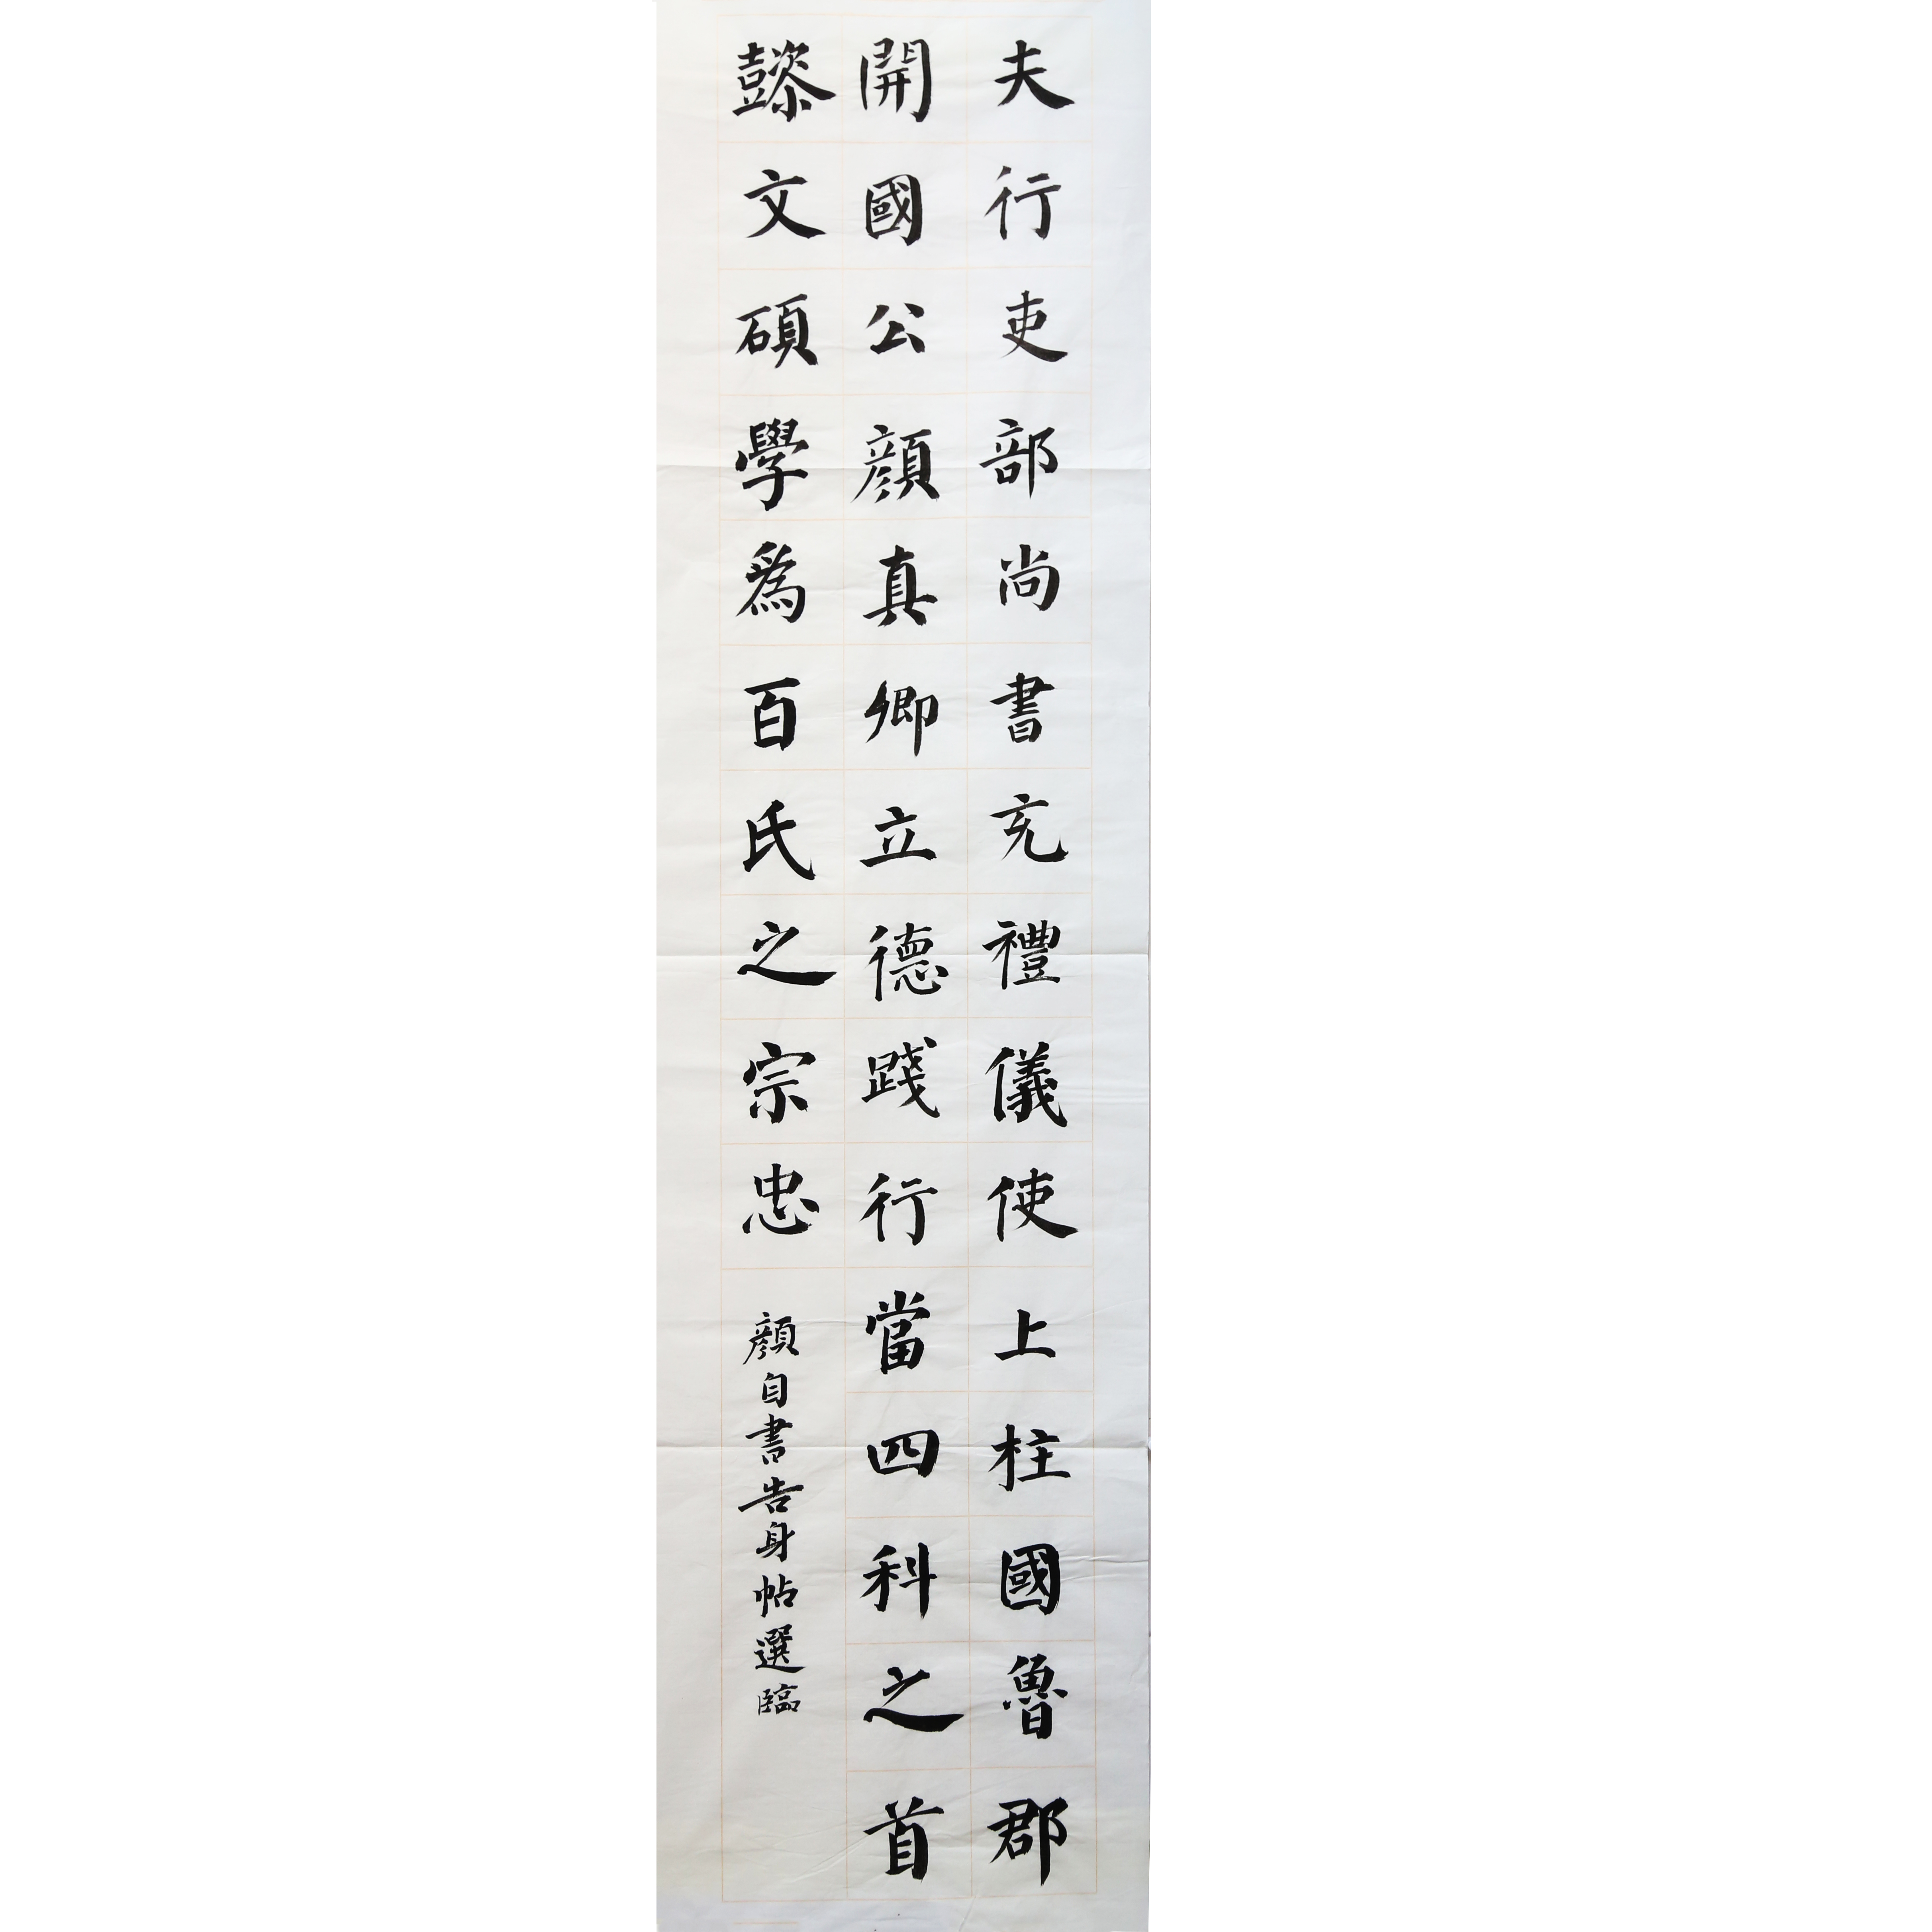 夫行吏部尚書充禮儀使上柱國魯郡
開國公顏真卿立德踐行當四科之首
懿文碩學為百氏之宗忠
顏自書告身帖選臨